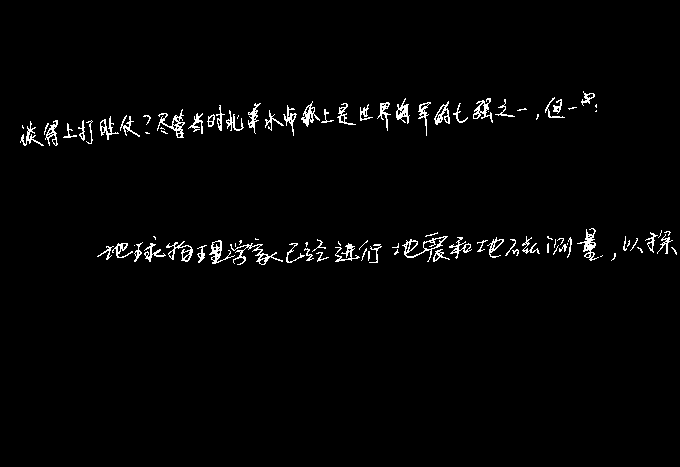 谈得上打胜仗?尽管当时北洋水师称上是世界海军的七强之一,但一
地球物理学家已经进行地震和地磁测量,以探